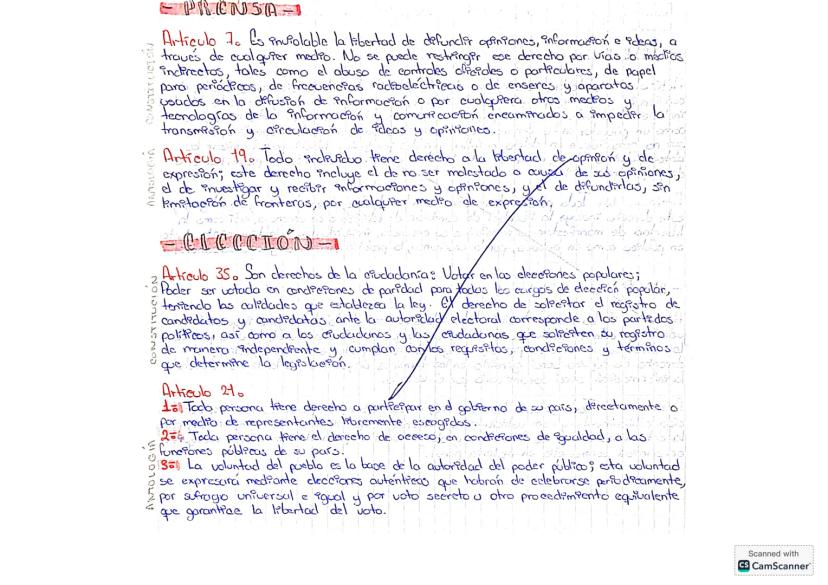 - PRENSA -
Artículo 7. Es inviolable la libertad de difundir opiniones, información e ideas, a
través de cualquier medio. No se puede restringir ese derecho por vías o medios
indirectos, tales como el abuso de controles oficiales o particulares, de papel
para periódicos, de frecuencias radioeléctricas o de enseres y aparatos
usados en la difusión de información o por cualquiera otros medios y
tecnologías de la información y comunicación encaminados a impedir la
transmisión y circulación de ideas y opiniones.
CONSTITUCIÓN
Artículo 19. Todo individuo tiene derecho a la libertad de opinión y de
expresión; este derecho incluye el de no ser molestado a causa de sus opiniones,
el de investigar y recibir informaciones y opiniones, y el de difundirlas, sin
limitación de fronteras, por cualquier medio de expresión.
ANTOLOGIA
- ELECCIÓN -
Artículo 35. Son derechos de la ciudadanía: Votar en las elecciones populares;
Poder ser votada en condiciones de paridad para todos los cargos de elección popular,
teniendo las calidades que establezca la ley. El derecho de solicitar el registro de
candidatos y candidatas ante la autoridad electoral corresponde a los partidos
políticos, así como a los ciudadanos y las ciudadanas que soliciten su registro
de manera independiente y cumplan con los requisitos, condiciones y términos
que determine la legislación.
CONSTITUCION
Artículo 21.
1=) Toda persona tiene derecho a participar en el gobierno de su país, directamente o
por medio de representantes libremente escogidos.
2=) Toda persona tiene el derecho de acceso, en condiciones de igualdad, a las
funciones públicas de su país.
3=) La voluntad del pueblo es la base de la autoridad del poder público; esta voluntad
se expresará mediante elecciones auténticas que habrán de celebrarse periódicamente,
por sufragio universal e igual y por voto secreto u otro procedimiento equivalente
que garantice la libertad del voto.
ANTOLOGIA
Scanned with
CS CamScanner